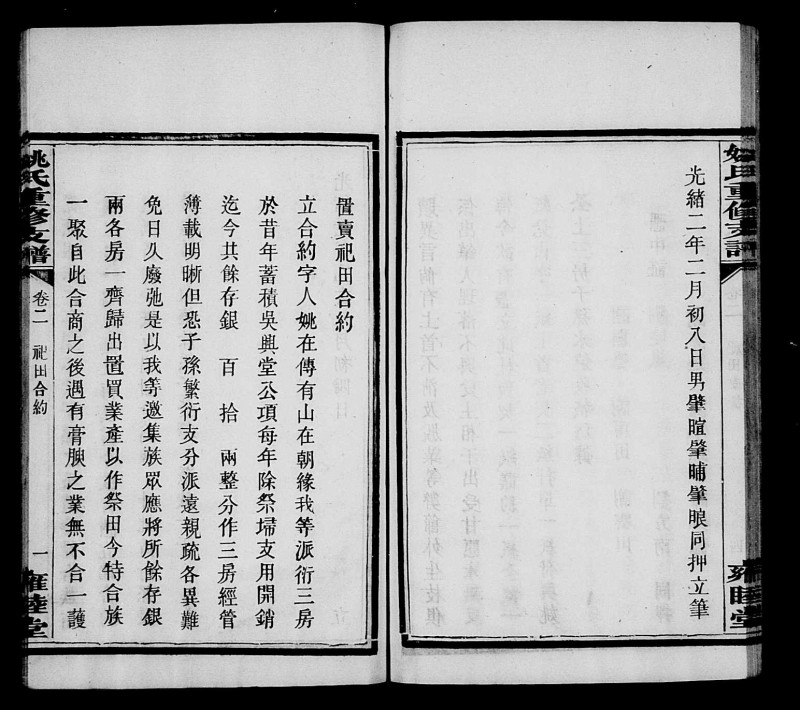 光緒二年二月初八日男肇暄肇晡肇眼同押立筆
雍睦堂
置賣祀田合約
立合約字人姚在傳有山在朝緣我等派衍三房
於昔年蓄積吳興堂公項每年除祭埽支用開銷
迄今共餘存銀 百 拾 兩整分作三房經管
薄載明晰但恐子孫繁衍支分派遠親疏各異難
免日久廢弛是以我等邀集族眾應將所餘存銀
兩各房一齊歸出置買業產以作祭田今特合族
一聚自此合商之後遇有膏腴之業無不合一護
姚氏重修支譜
卷二 祀田合約
一
雍睦堂